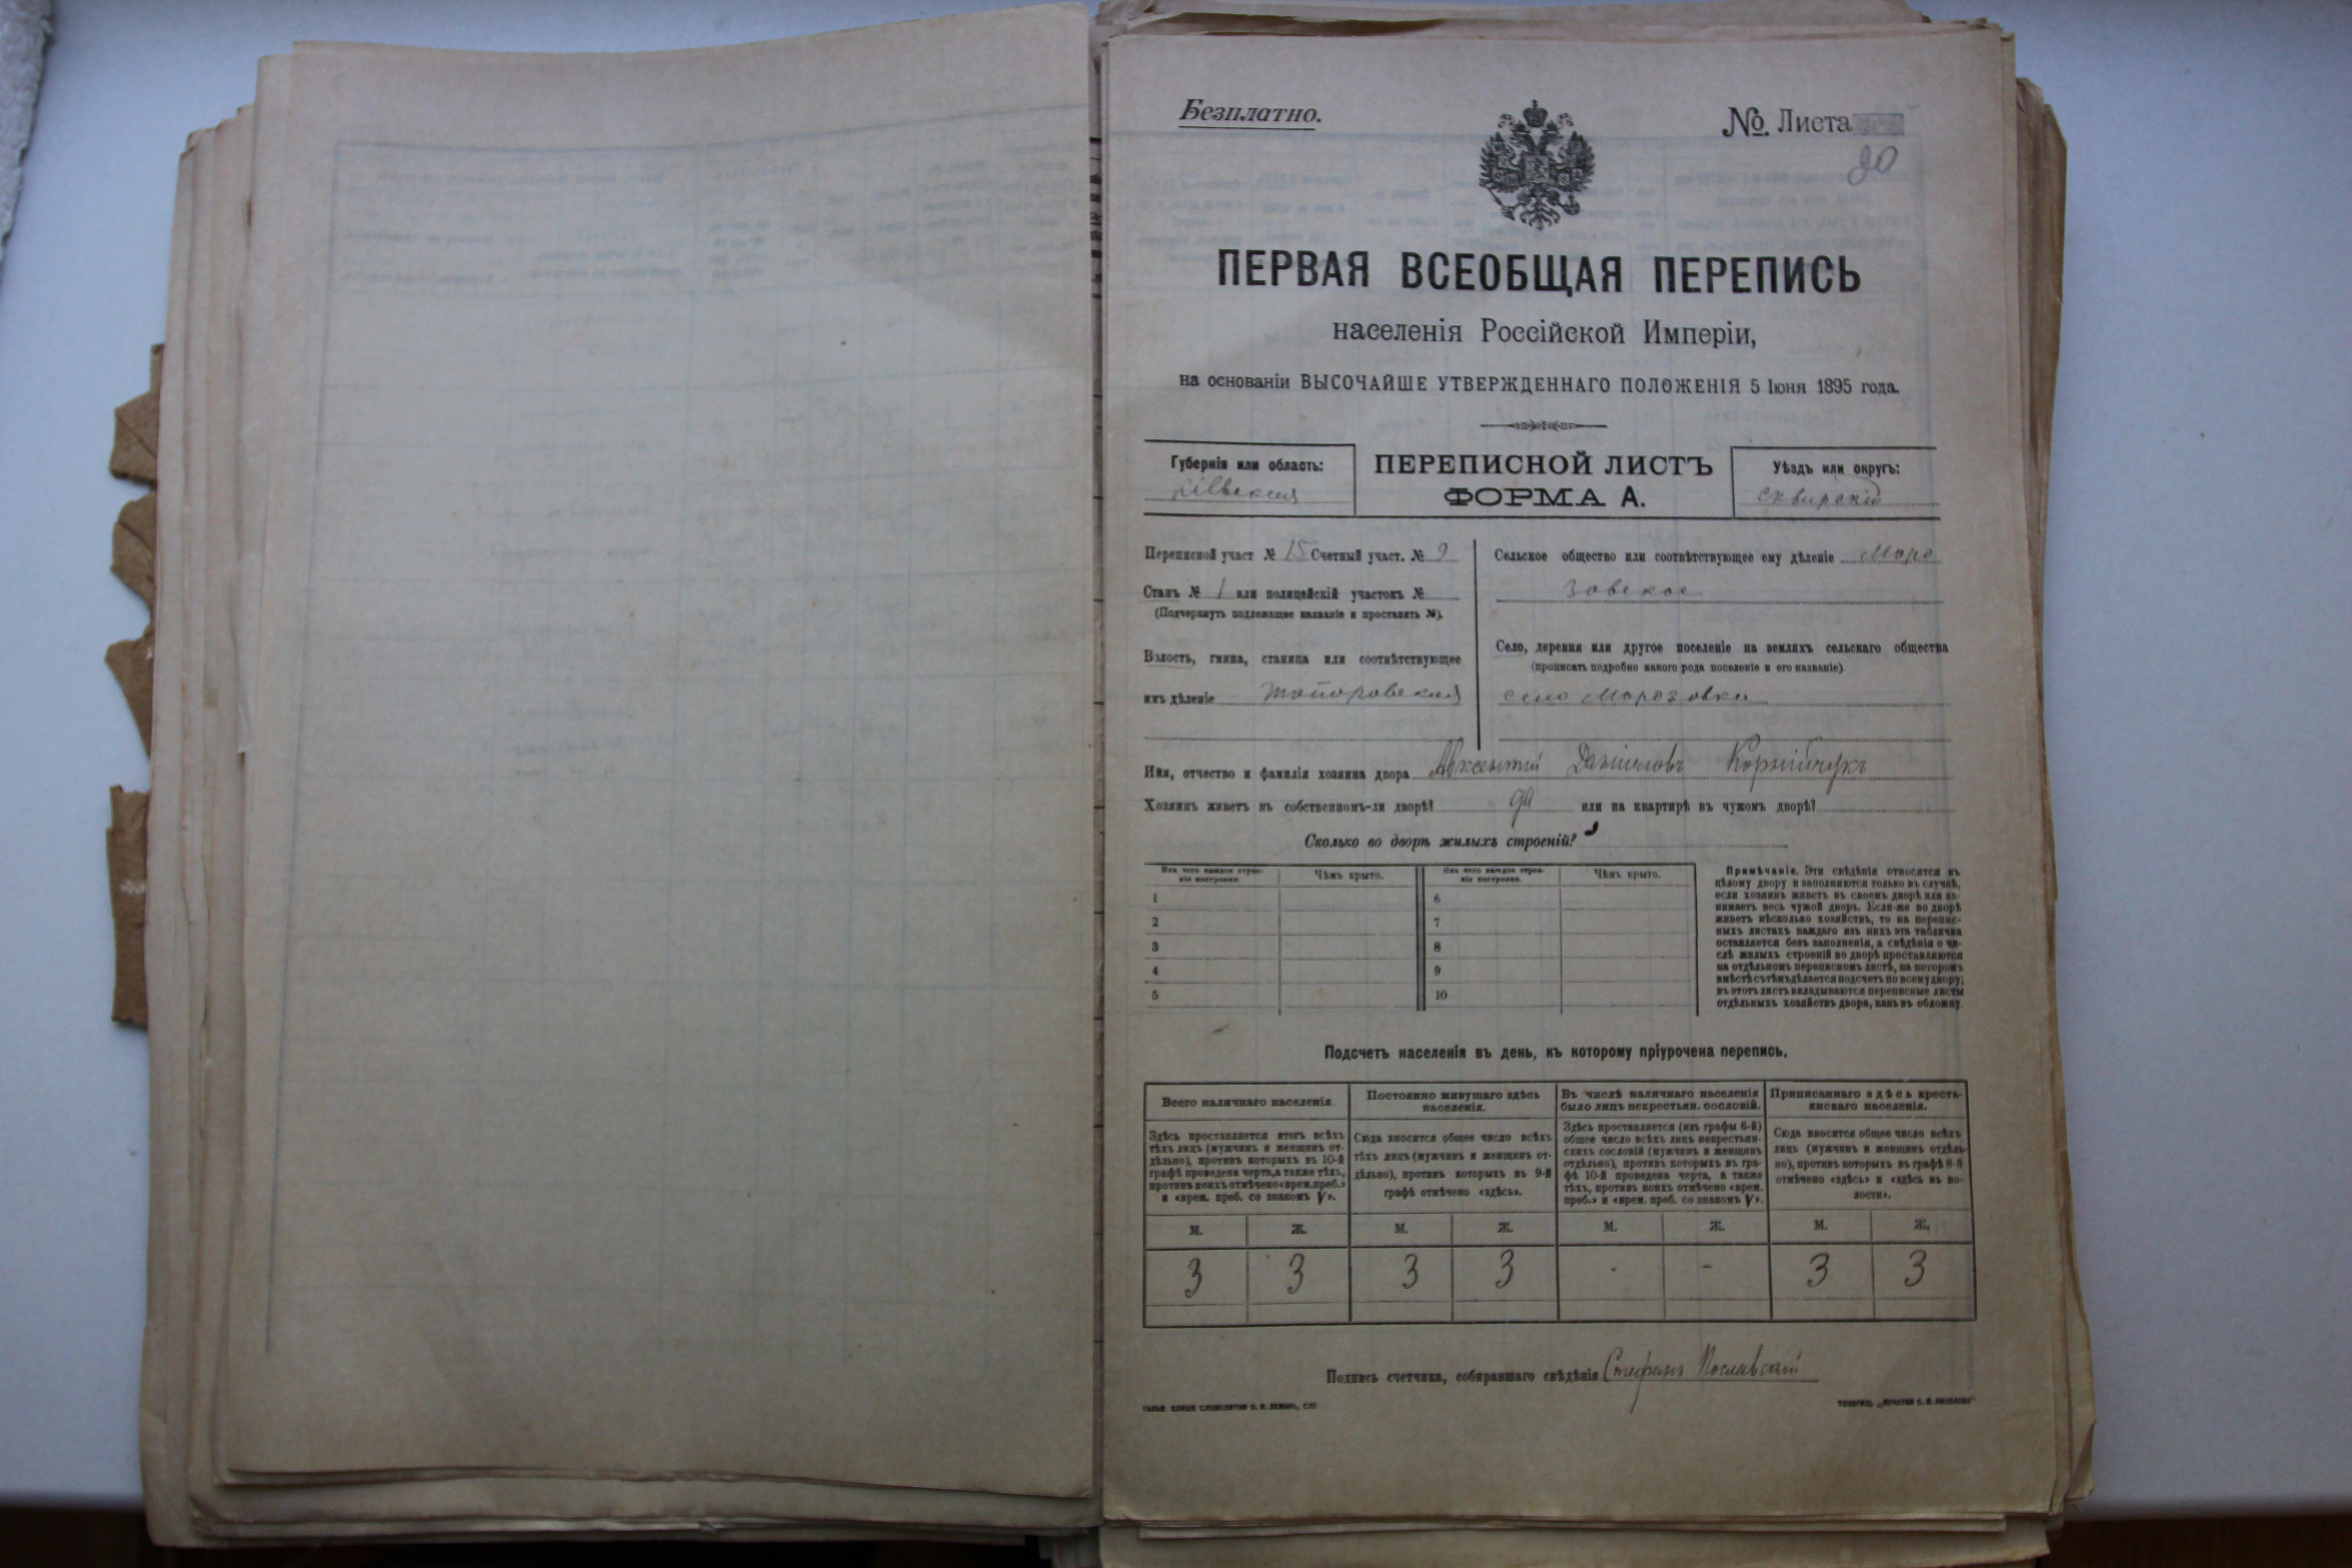 Безплатно.
№ Листа
90
ПЕРВАЯ ВСЕОБЩАЯ ПЕРЕПИСЬ
населенія Россійской Имперіи,
на основаніи ВЫСОЧАЙШЕ УТВЕРЖДЕННАГО ПОЛОЖЕНІЯ 5 Іюня 1895 года.
Губернія или область:
Кіевская
ПЕРЕПИСНОЙ ЛИСТЪ
ФОРМА А.
Уѣздъ или округъ:
Сквирскій
Переписной участ № 15 Счетный участ. № 9
Станъ № 1 или полицейскій участокъ №
(Подчеркнуть подлежащее названіе и проставить №).
Волость, гмина, станица или соотвѣтствующее
имъ дѣленіе Топоровская
Сельское общество или соотвѣтствующее ему дѣленіе Моро
зовское
Село, деревня или другое поселеніе на земляхъ сельскаго общества
(прописать подробно какого рода поселеніе и его названіе)
село Морозовка
Имя, отчество и фамилія хозяина двора Авксентій Даніиловъ Корнійчукъ
Хозяинъ живетъ въ собственномъ-ли дворѣ? да или на квартирѣ въ чужомъ дворѣ?
Сколько во дворѣ жилыхъ строеній?
Изъ чего каждое строе-
ніе построено.
Чѣмъ крыто.
Изъ чего каждое строе-
ніе построено.
Чѣмъ крыто.
1
2
3
4
5
6
7
8
9
10
Примѣчаніе. Эти свѣдѣнія относятся къ
цѣлому двору и заполняются только въ случаѣ,
если хозяинъ живетъ въ своемъ дворѣ или за-
нимаетъ весь чужой дворъ. Если-же во дворѣ
живетъ нѣсколько хозяйствъ, то на перепис-
ныхъ листахъ каждаго изъ нихъ эта табличка
оставляется безъ заполненія, а свѣдѣнія о чи-
слѣ жилыхъ строеній во дворѣ проставляются
на отдѣльномъ переписномъ листѣ, на которомъ
вмѣстѣ съ тѣмъ дѣлается подсчетъ по всему двору;
въ этотъ листъ вкладываются переписные листы
отдѣльныхъ хозяйствъ двора, какъ въ обложку.
Подсчетъ населенія въ день, къ которому пріурочена перепись.
Всего наличнаго населенія.
Здѣсь проставляется итогъ всѣхъ
тѣхъ лицъ (мужчинъ и женщинъ от-
дѣльно), противъ которыхъ въ 10-й
графѣ проведена черта, а также тѣхъ,
противъ коихъ отмѣчено «врем. преб.»
и «врем. преб. со знакомъ V».
Постоянно живущаго здѣсь
населенія.
Сюда вносится общее число всѣхъ
тѣхъ лицъ (мужчинъ и женщинъ от-
дѣльно), противъ которыхъ въ 9-й
графѣ отмѣчено «здѣсь».
Въ числѣ наличнаго населенія
было лицъ некрестьян. сословій.
Здѣсь проставляется (изъ графы 6-й)
общее число всѣхъ лицъ некрестьян-
скихъ сословій (мужчинъ и женщинъ
отдѣльно), противъ которыхъ въ гра-
фѣ 10-й проведена черта, а также
тѣхъ, противъ коихъ отмѣчено «врем.
преб.» и «врем. преб. со знакомъ V».
Приписаннаго здѣсь кресть-
янскаго населенія.
Сюда вносится общее число всѣхъ
лицъ (мужчинъ и женщинъ отдѣль-
но), противъ которыхъ въ графѣ 8-й
отмѣчено «здѣсь» и «здѣсь въ во-
лости».
М. Ж. М. Ж. М. Ж. М. Ж.
3 3 3 3 - - 3 3
Подпись счетчика, собиравшаго свѣдѣнія Стефанъ Пославскій